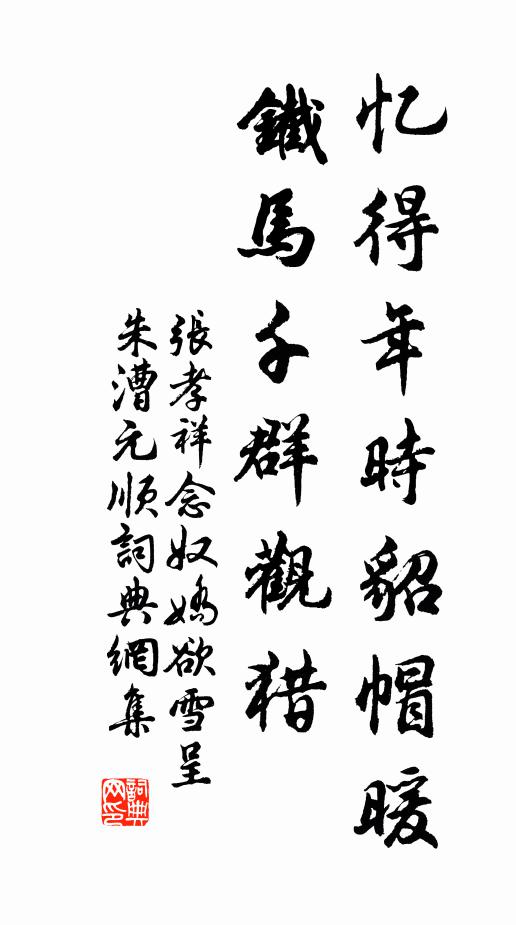 忆得年時貂帽暖
鐵馬千群觀猎
張孝祥念奴嬌欲雪呈
朱漕元順詞典網集
詞典网印